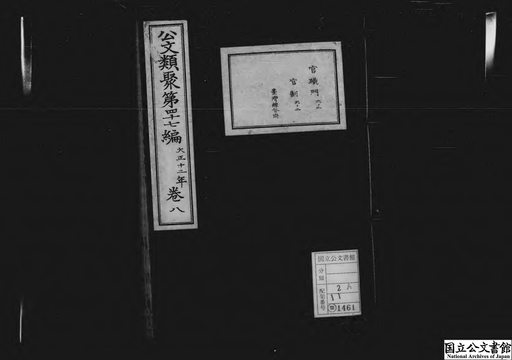 公文類聚第四十七編 大正十二年 巻八
官職門 六ノ二
官制 六ノ二
臺灣總督府
国立公文書館
分類
配架番号
2 A
11
1461
国立公文書館
National Archives of Japan